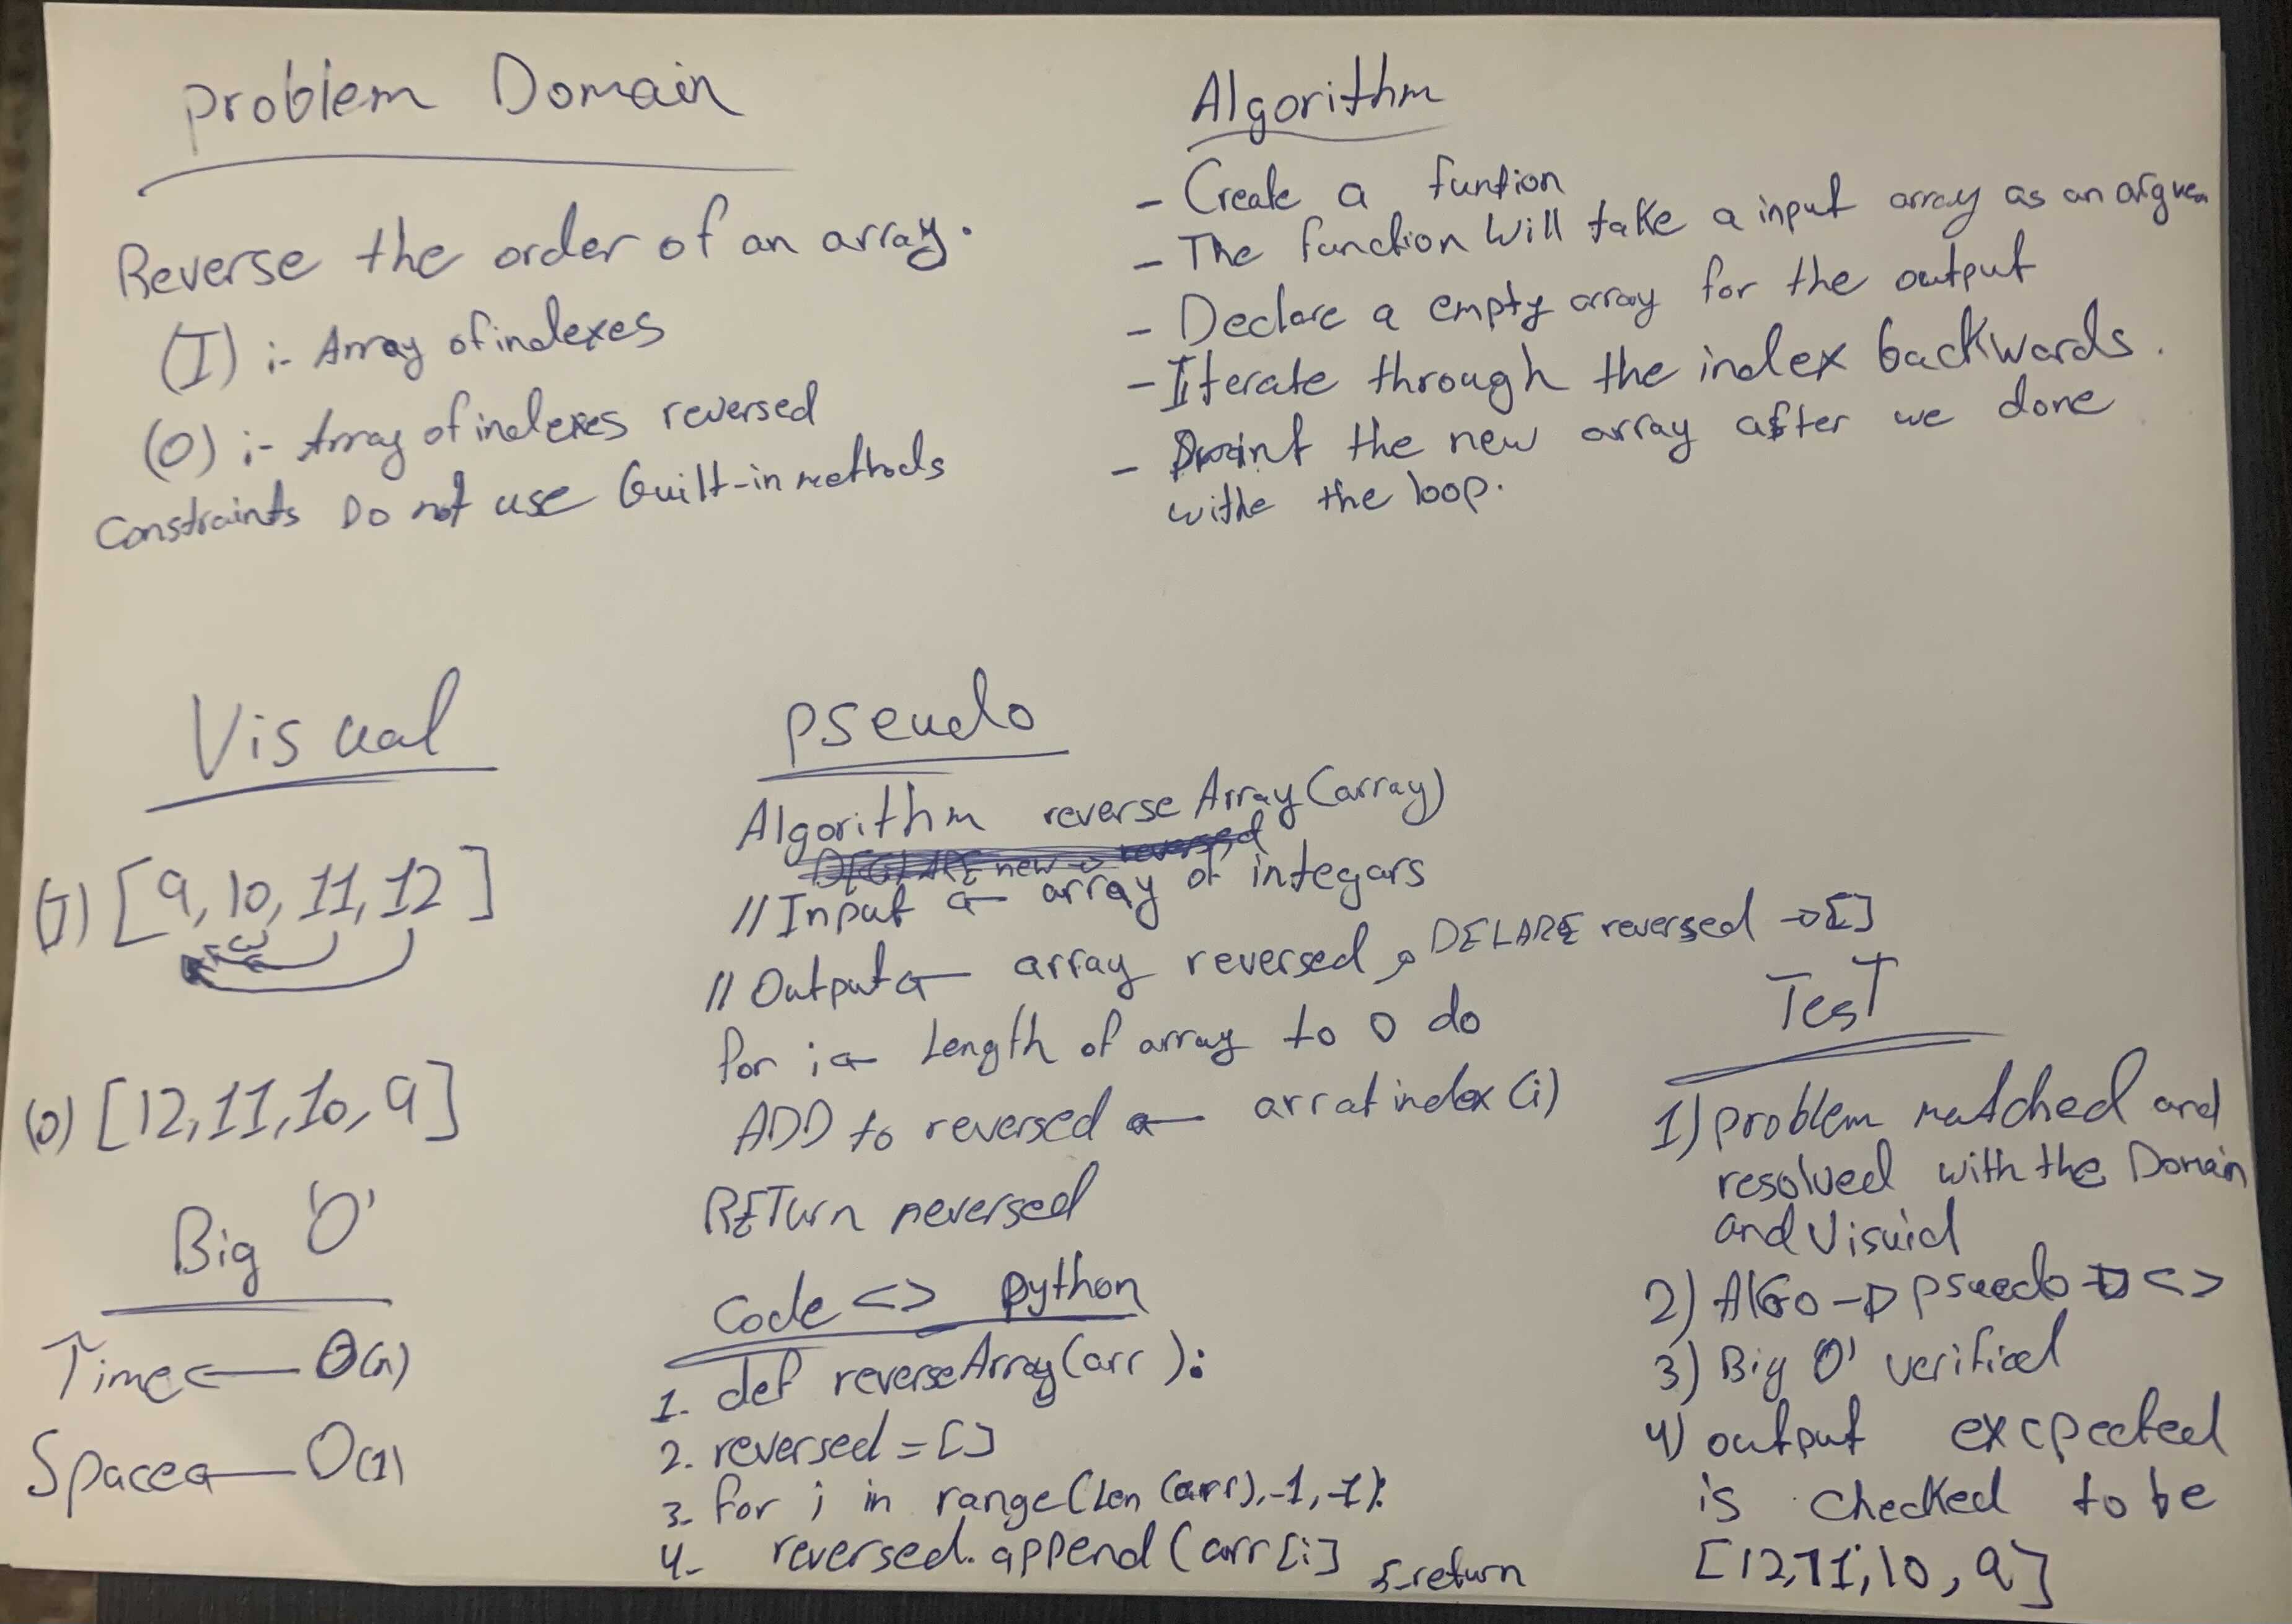 problem Domain
Reverse the order of an array.
(I) :- Array of indexes
(O) :- Array of indexes reversed
Constraints Do not use built-in methods
Algorithm
- Create a funtion
- The function will take a input array as an
- Declare a empty array for the output
- Iterate through the index backwards.
- print the new array after we done
withe the loop.
Visual
(I) [9, 10, 11, 12]
(O) [12, 11, 10, 9]
Big O'
Time ← O(n)
Space ← O(1)
pseudo
Algorithm reverse Array (array)
DECLARE new → reversed
// Input ← array of integars
// Output ← array reversed, DELARE reversed → []
for i ← Length of array to 0 do
ADD to reversed ← arr at index (i)
RETurn reversed
Code <> python
1- def reverseArray(arr):
2. reversed = []
3- for i in range(len(arr),-1,-1):
4- reversed.append(arr[i]
5-return
TesT
1) problem matched and
resolved with the Domain
and
2) AlGo → pseudo → <>
3) Big O' verified
4) output excpected
is checked to be
[12, 11, 10, 9]